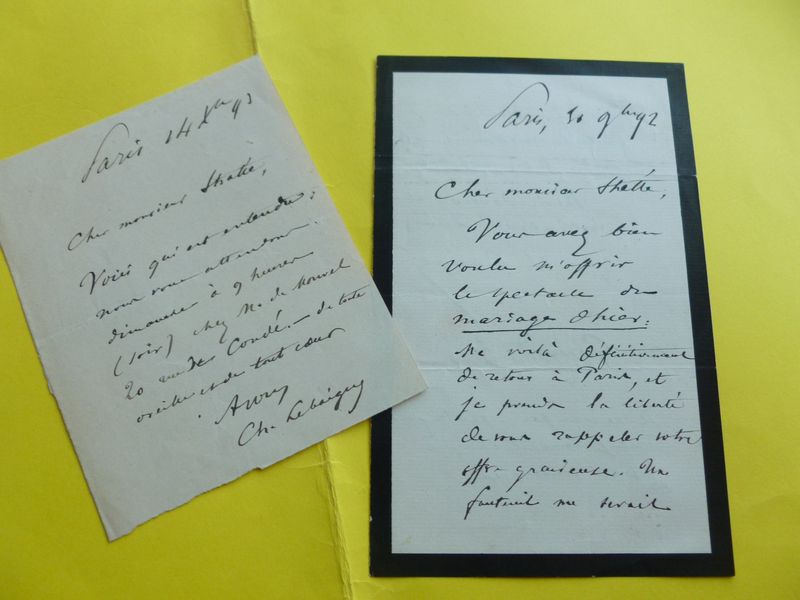 Paris 14 Xbre 93
Cher monsieur
Voici qui est entendu :
nous vous attendons
dimanche à 9 heures
(soir) chez Me de
20 rue de Condé. — de toute
oreille et de tout cœur
Ch.
Paris, 9bre 92
Cher monsieur
Vous avez bien
voulu m'offrir
le spectacle du
mariage d'hier :
Me voilà définitivement
de retour à Paris, et
je prends la liberté
de vous rappeler votre
offre gracieuse. Un
fauteuil me serait